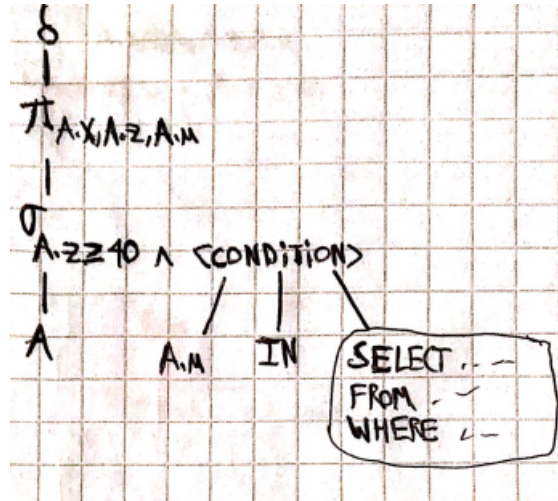 δ
π A.X, A.Z, A.M
σ
A.Z≥40 ∧ <CONDITION>
A A.M IN SELECT . . —
FROM . –
WHERE . –